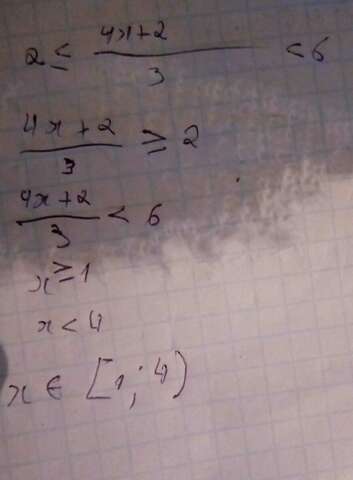 2 ≤ (4x+2)/3 < 6
(4x+2)/3 ≥ 2
(4x+2)/3 < 6
x ≥ 1
x < 4
x ∈ [1; 4)